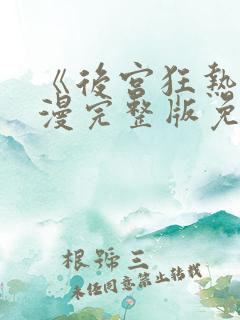 《後宮狂熱
漫完整版免
根號三
未经同意禁止转载